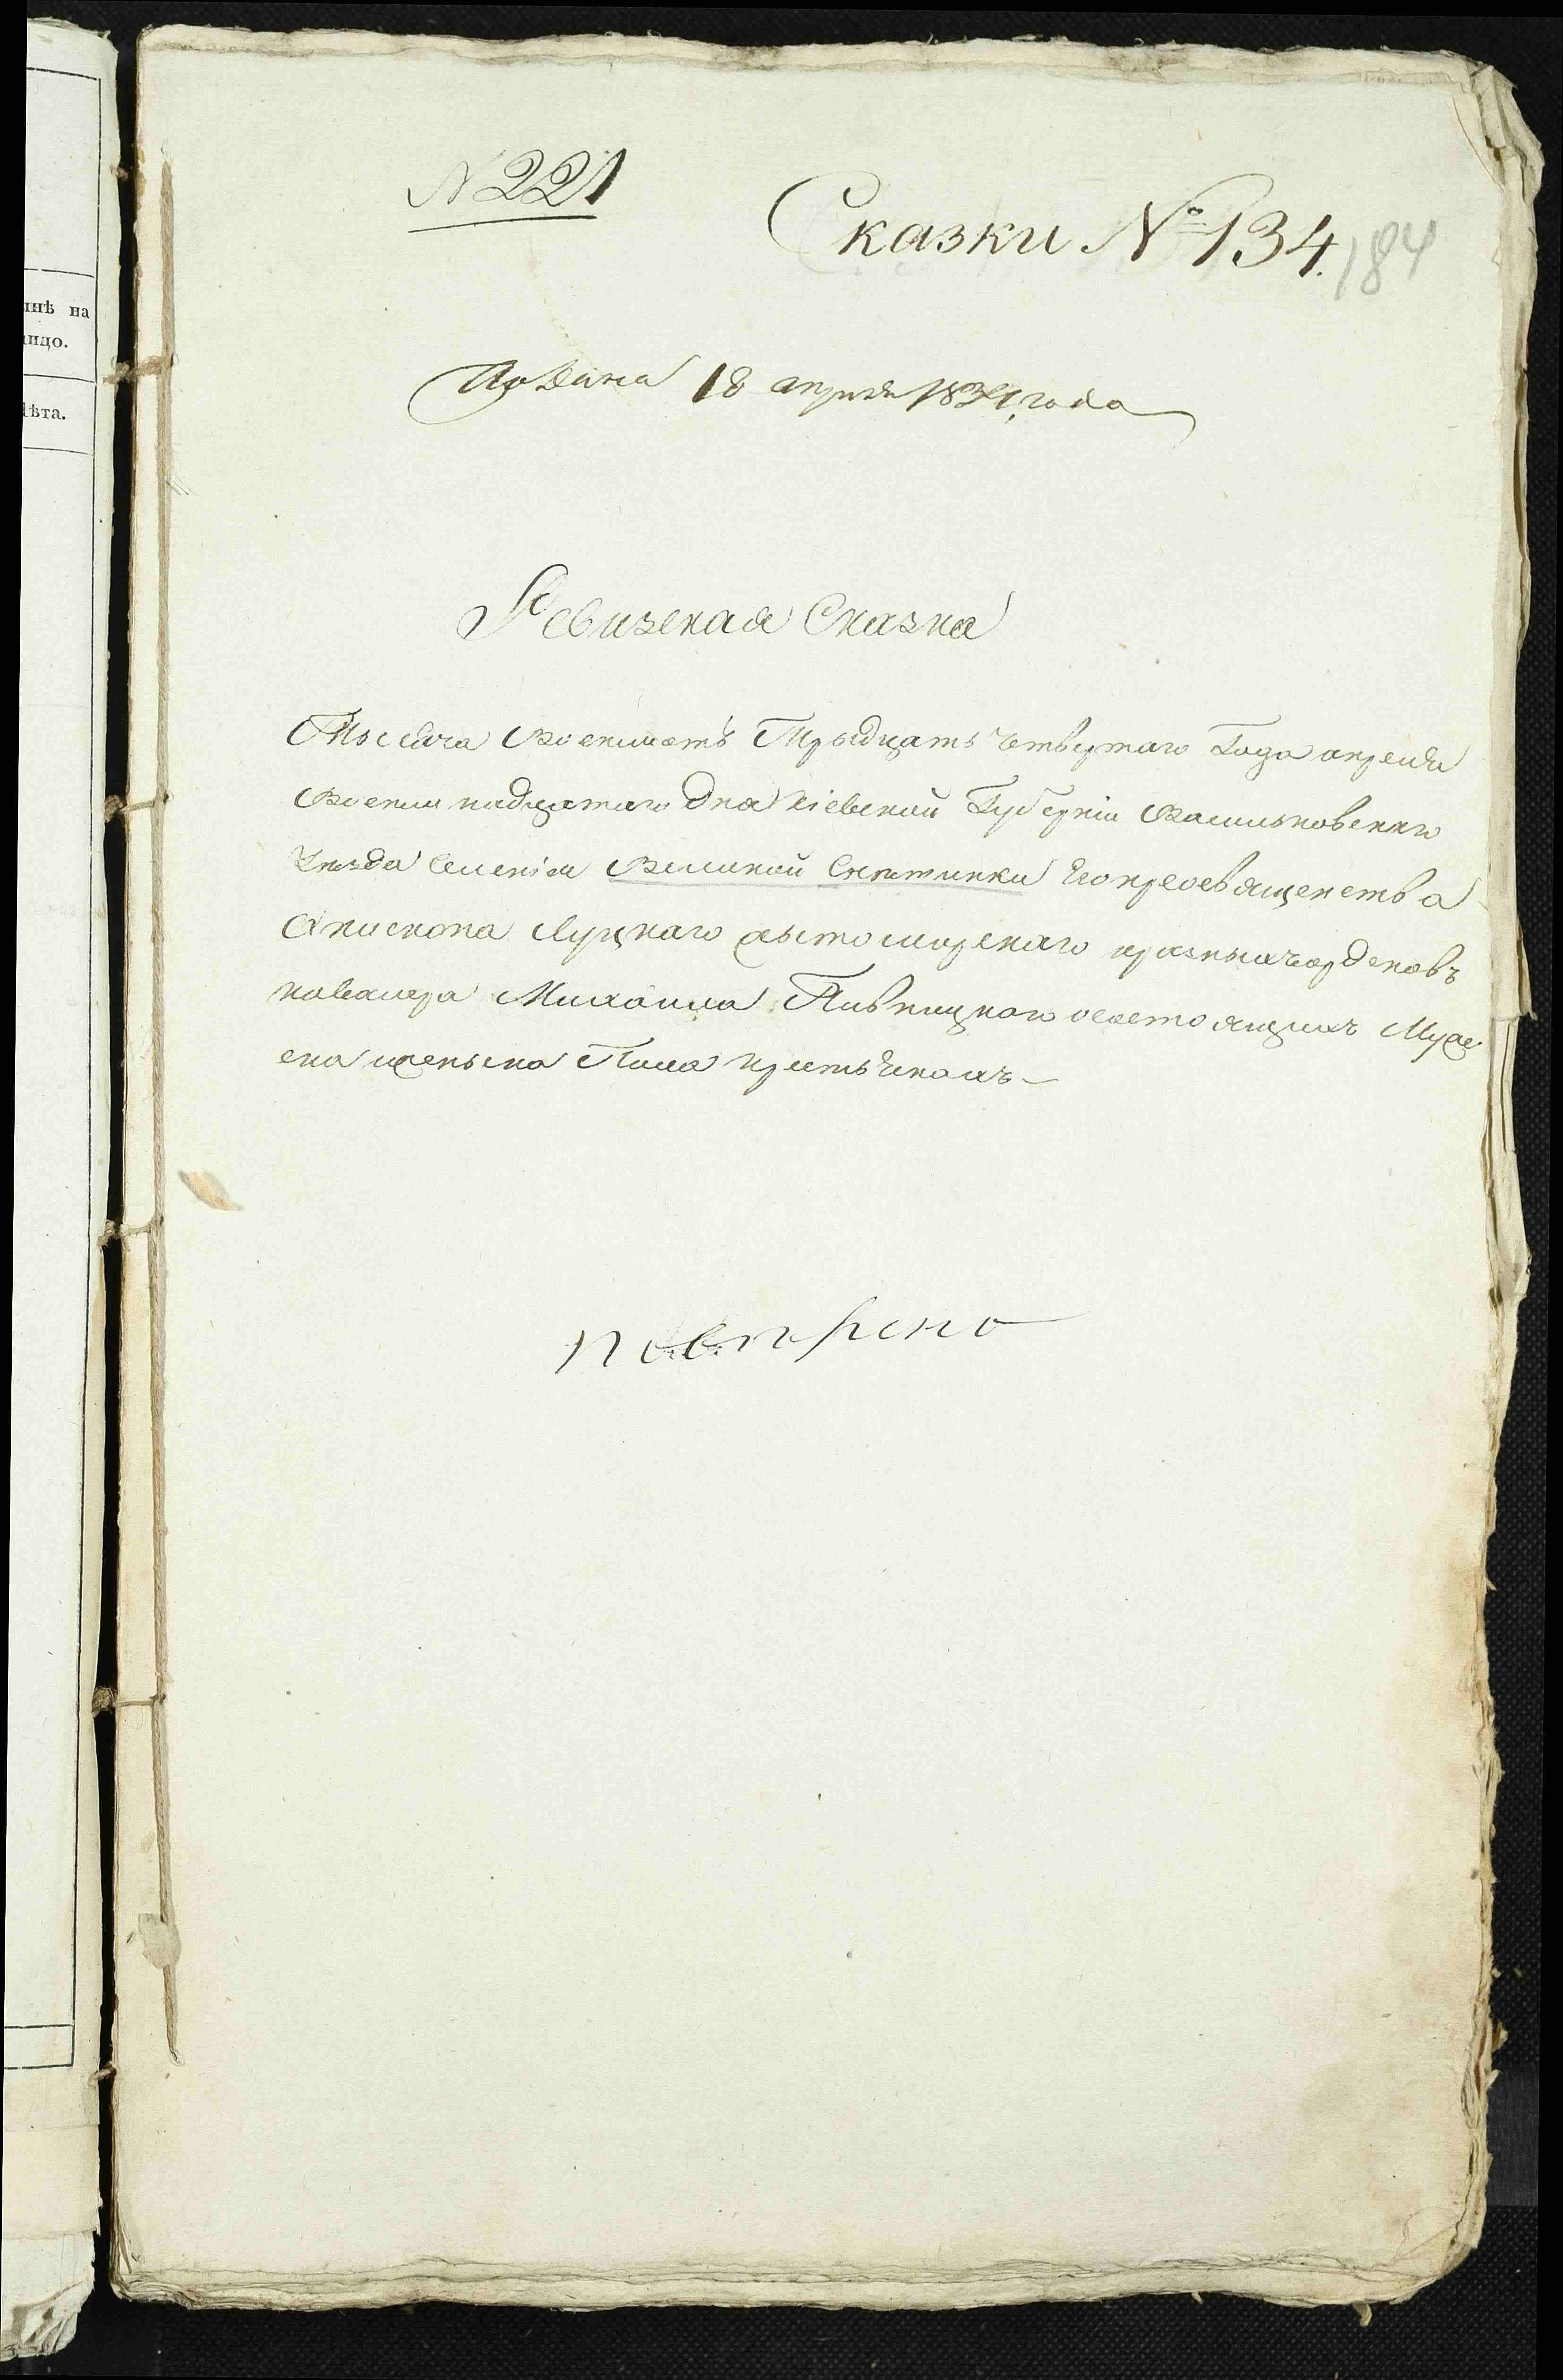 N 221
Сказки № 134.
184
Подана 18 апреля 1834, года
Ревизская Сказка
Тысеача Восемсотъ Трыдцать Четвертаго Года апреля
Восемнадцатаго Дна Кіевской Губерніи Васильковскаго
Уезда Селенія Великой Снитинки Его преосвященства
Апископа Луцкаго Жытомирскаго и разныхъ орденовъ
кавалера Михаила Пивницкого о состоящихъ Муже
ска и женьска Пола крестьянахъ
поверено
нѣ на
лицо.
Лѣта.